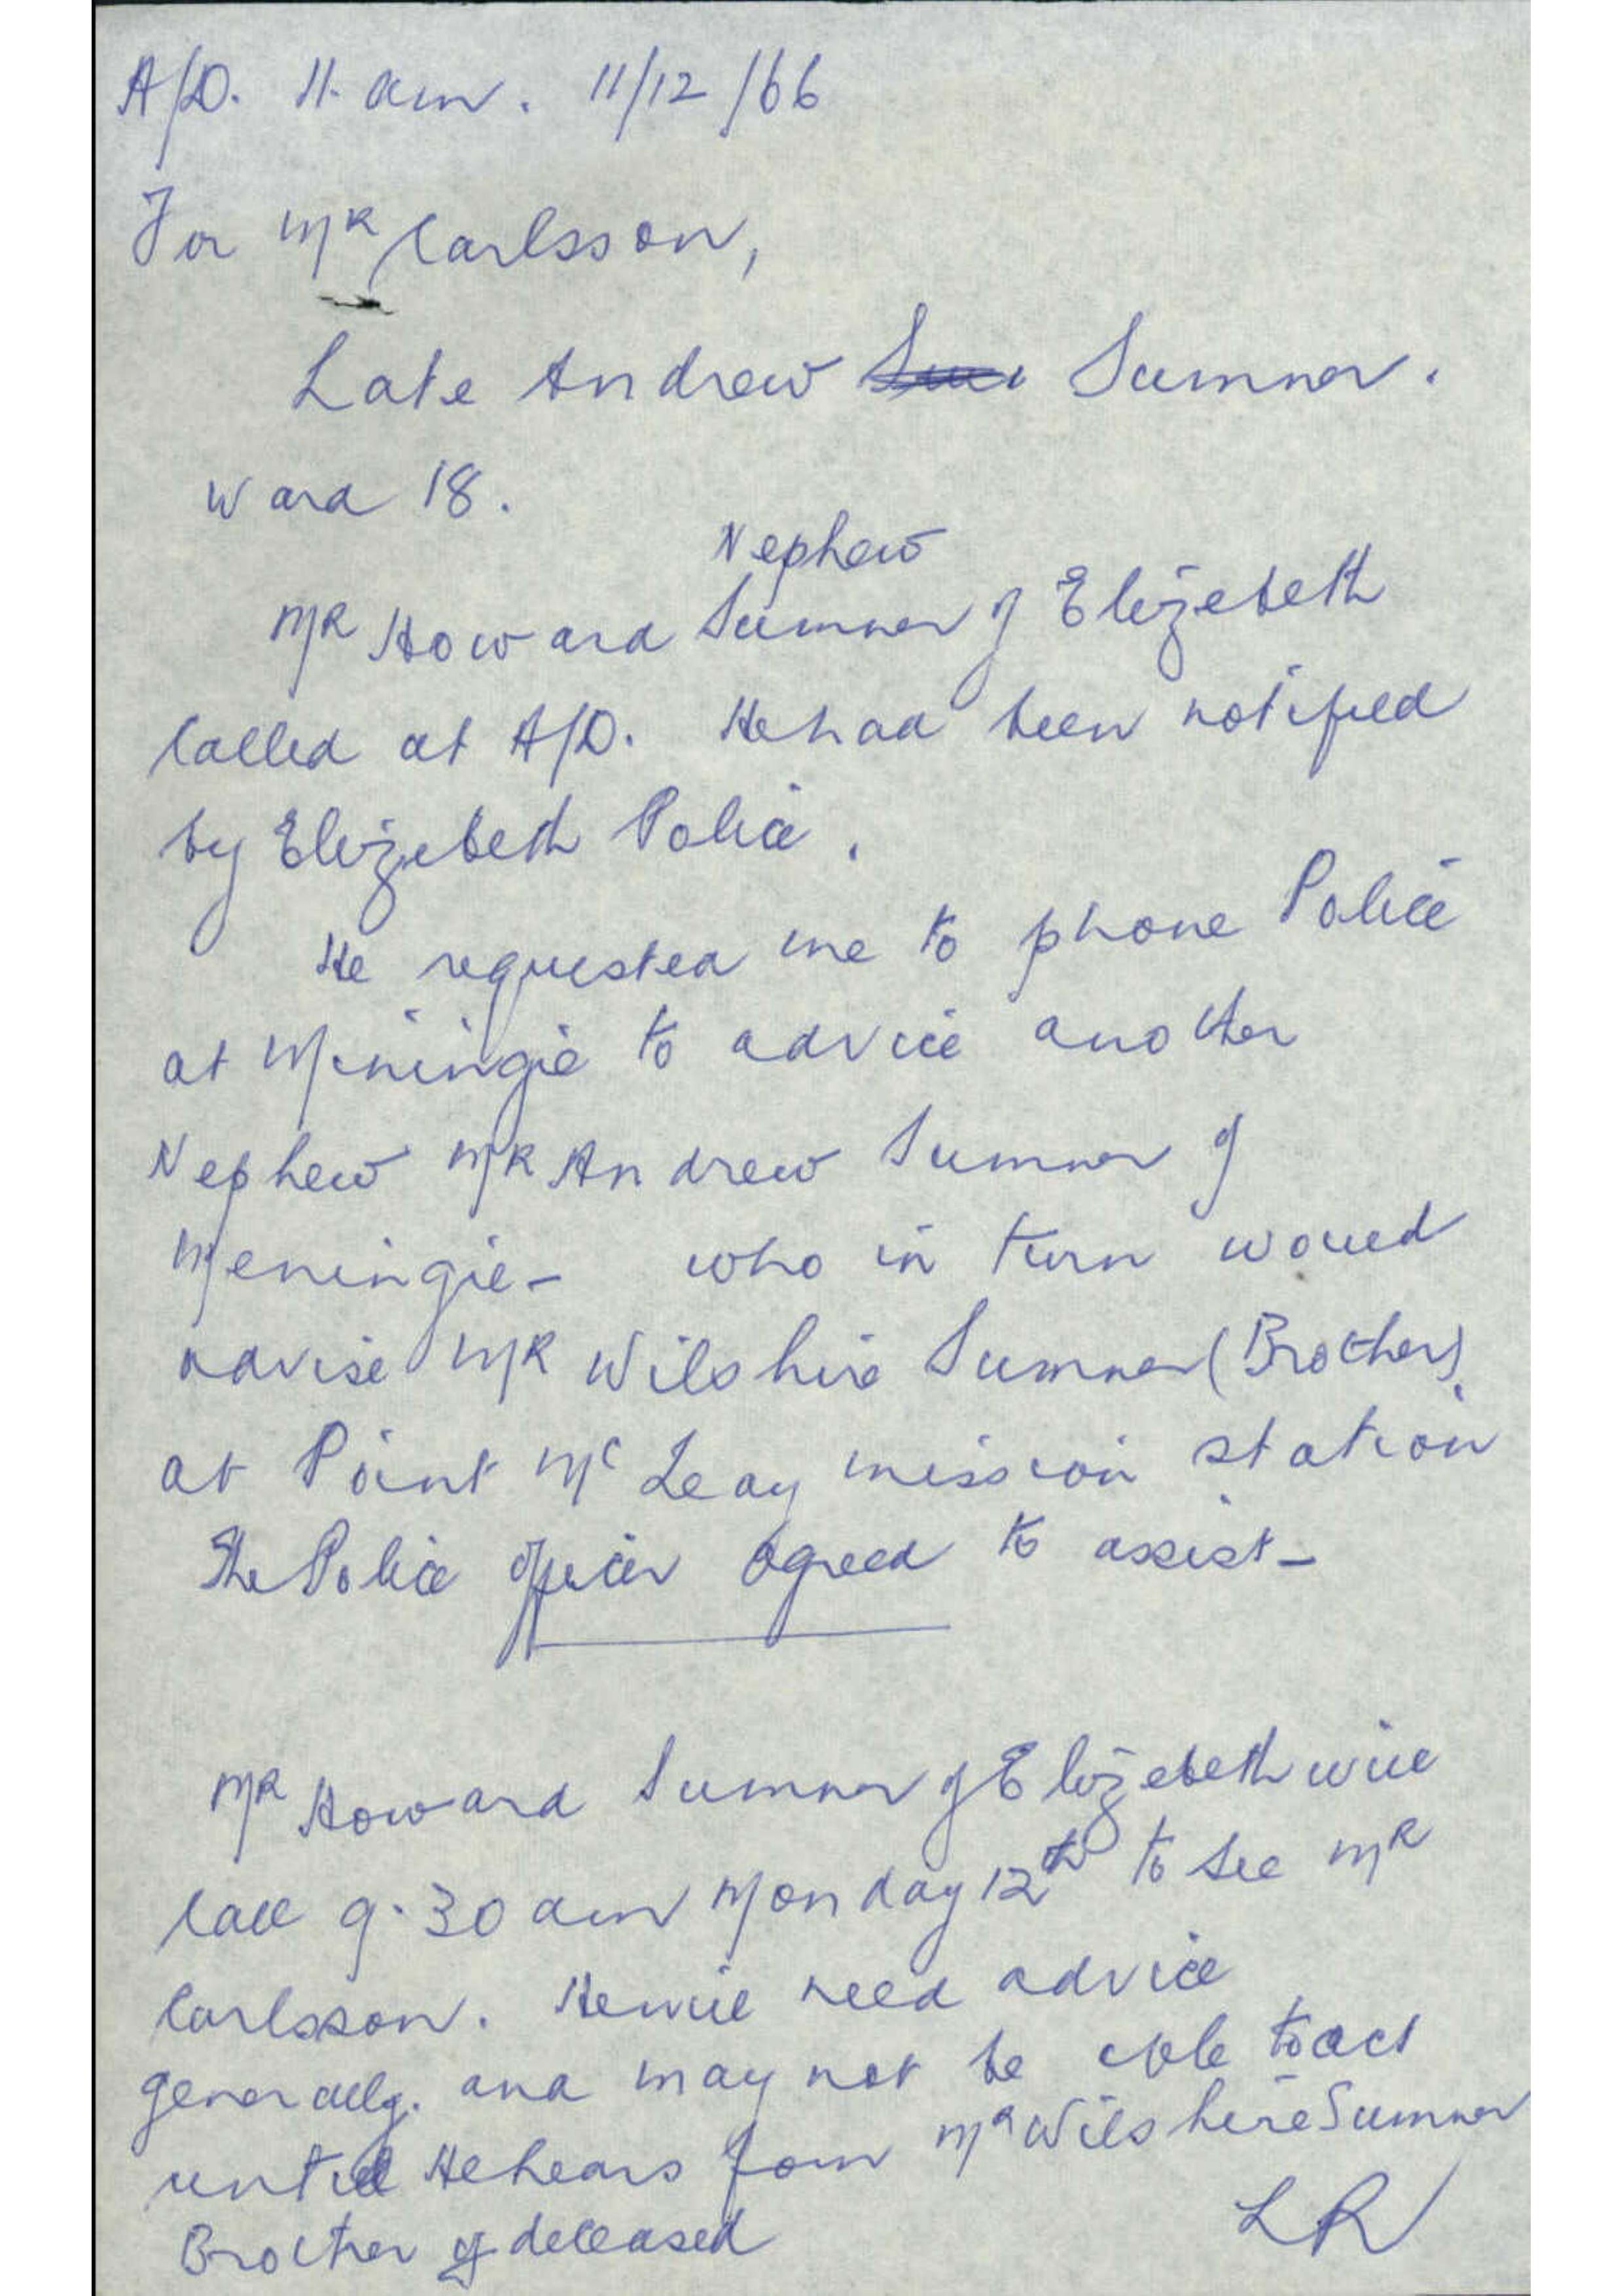 A/D. 11. am. 11/12/66
For MR Carlsson,
Late Andrew Sumner.
Ward 18.
Nephew
MR Howard Sumner of Elizebeth
called at A/D. He had been notified
by Elizebeth Police.
He requested me to phone Police
at Meningie to advice another
Nephew MR Andrew Sumner of
Meningie - who in turn would
advise MR Wilshire Sumner (Brother).
at Point Mc Leay mission station
The Police officer agreed to assist -
MR Howard Sumner of Elizebeth will
call 9.30 am Monday 12th to see MR
Carlsson. He will need advice
generally. and may not be able to act
until He hears from MR Wilshire Sumner
Brother of deceased
LR